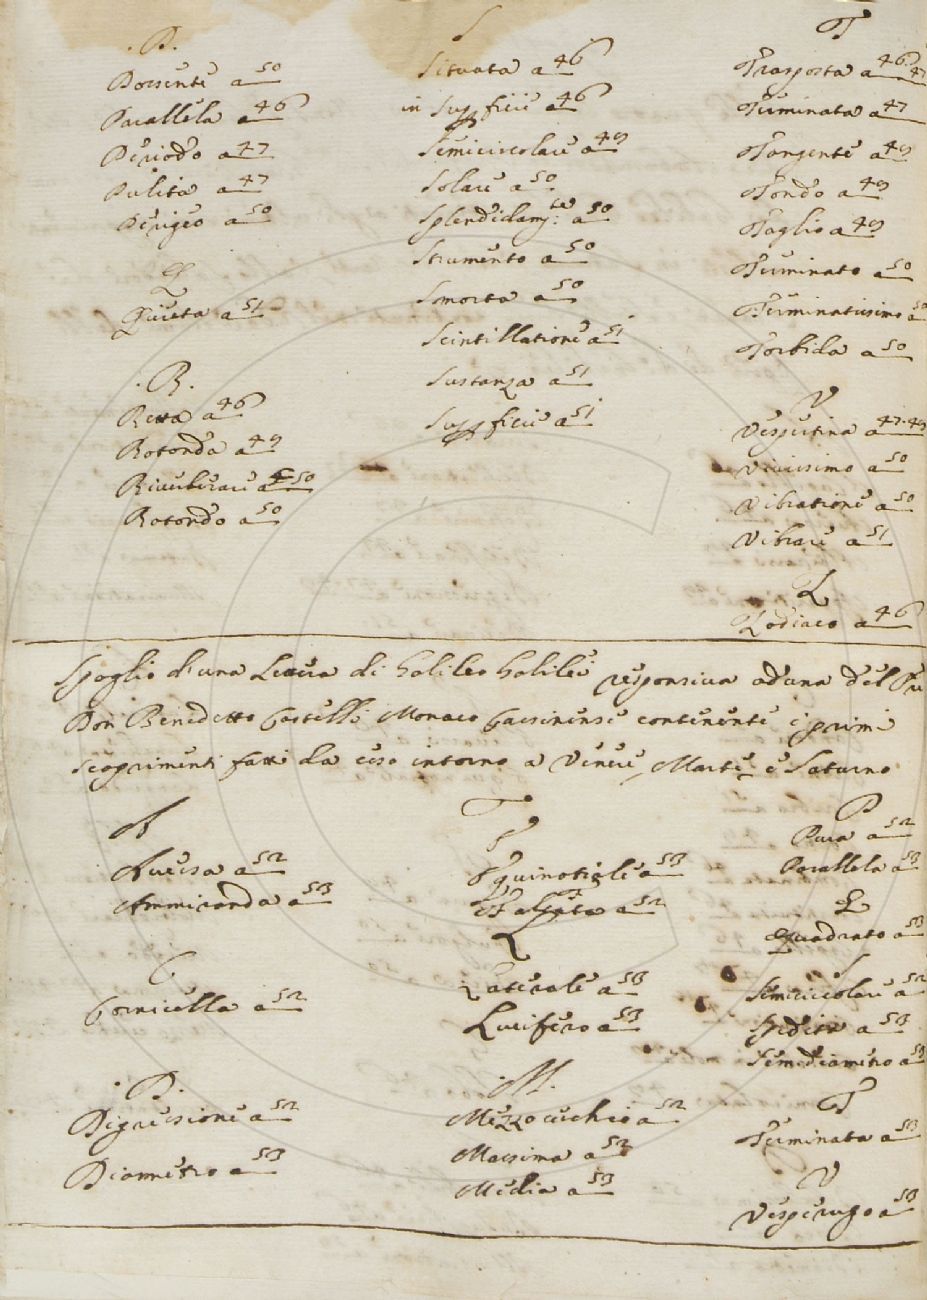 .P.
Parallela a 46
Periodo a 47
Pulita a 47
Perigeo a 50
Q
Quieta a 51
.R.
Retta a 46
Rotonda a 49
Riverberare a 50
Rotondo a 50
S
Situata a 46
in Supp.ficie a 46
Semicircolare a 49
Solare a 50
Splendidam.te a 50
Strumento a 50
Smorta a 50
Scintillatione a 51
Sustanza a 51
Supp.ficie a 51
T
Trasporta a 46. 47
Terminata a 47
Tangente a 49
Tondo a 49
Taglio a 49
Terminato a 50
Terminatissimo a 50
Torbida a 50
V
Vespertina a 47. 49
Vivissimo a 50
Vibratione a 50
Vibrare a 51
Z
Zodiaco a 46
Spoglio d'una Lettera di Galileo Galilei responsiva ad una del
Don Benedetto Castelli Monaco Cassinense continente i primi
scoprimenti fatti da esso intorno a Venere, Marte e Saturno
A
Aversa a 52
Ammiranda a 53
C
Cornicella a 52
.D.
Digressione a 52
Diametro a 53
Falcata a 52
L
Laterale a 53
Lucifero a 53
.M.
Mezzo cerchio a 52
Massima a 52
Media a 53
P
Pura a 52
Parallela a 53
Q
Quadrato a 53
S
Semicircolare a 52
Semidiametro a 53
T
Terminata a 53
V
Vesperugo a 53